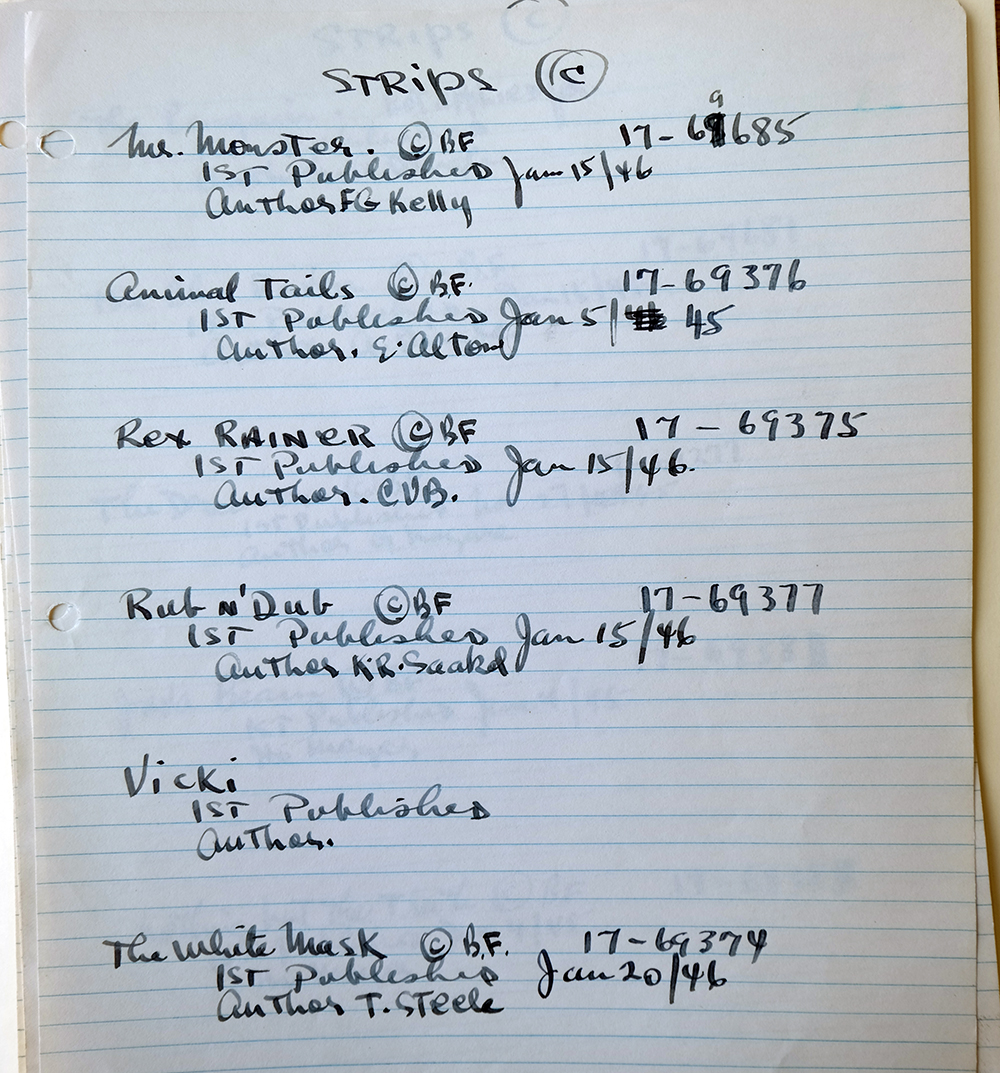 STRIPS ©
Mr. Monster. © BF 17-69685
1ST Published Jan 15/46
Author FG Kelly
Animal Tails © B.F. 17-69376
1ST Published Jan 5/ 45
Author. E. Alton
Rex RAINER © BF 17-69375
1ST Published Jan 15/46.
Author. CVB.
Rub N' Dub © BF 17-69377
1ST Published Jan 15/46
Author K.R. Saakel
Vicki
1ST Published
Author.
The White Mask © B.F. 17-69374
1ST Published Jan 20/46
Author T. STeele